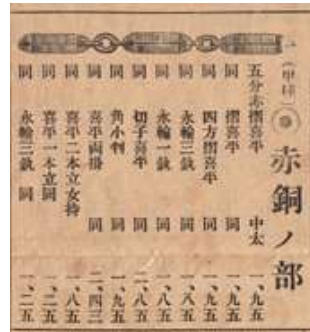 赤銅ノ部
五分赤摺喜平 中太 一、九五
同 摺喜平 同 一、九五
同 四方摺喜平 同 一、九五
同 永輪三 同 一、八五
同 永輪一 同 一、八五
同 切子喜平 同 二、八五
同 角小判 同 一、九五
同 喜平両掛 同 二、四三
同 喜平二本立女持 一、八五
同 喜平一本立 同 一、二五
同 永輪三 同 一、二五